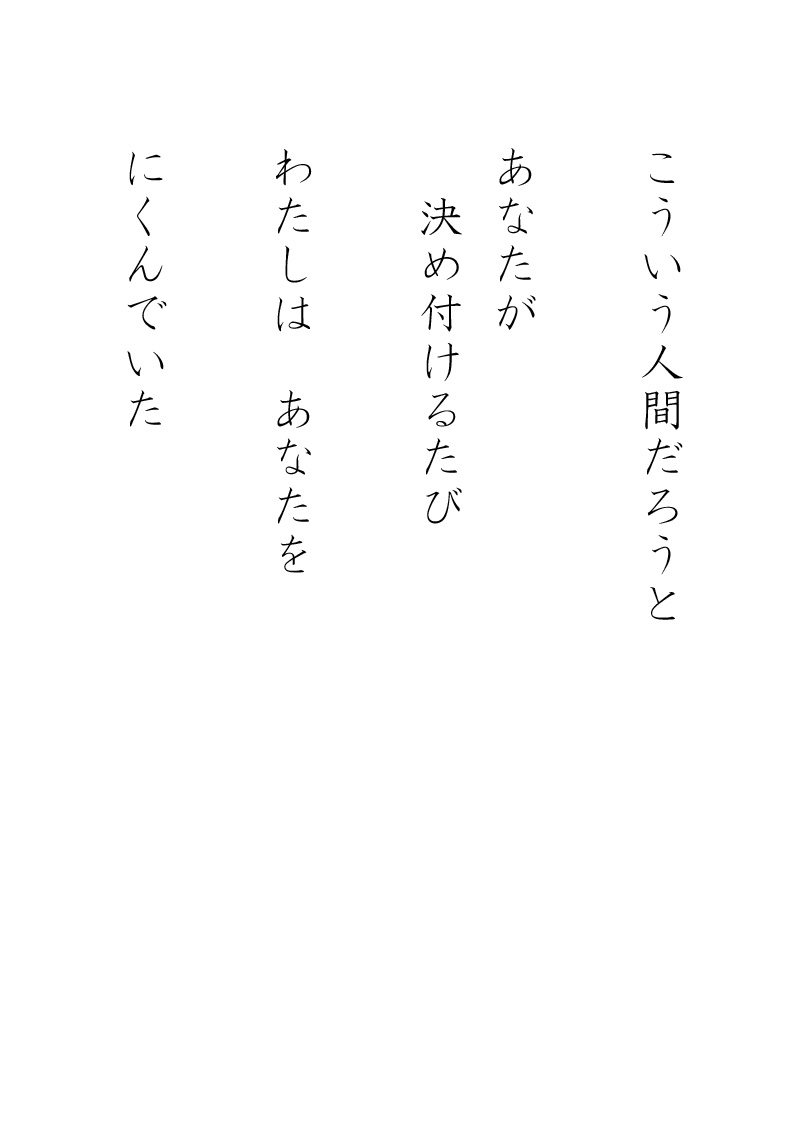 こういう人間だろうと
あなたが
決め付けるたび
わたしは　あなたを
にくんでいた